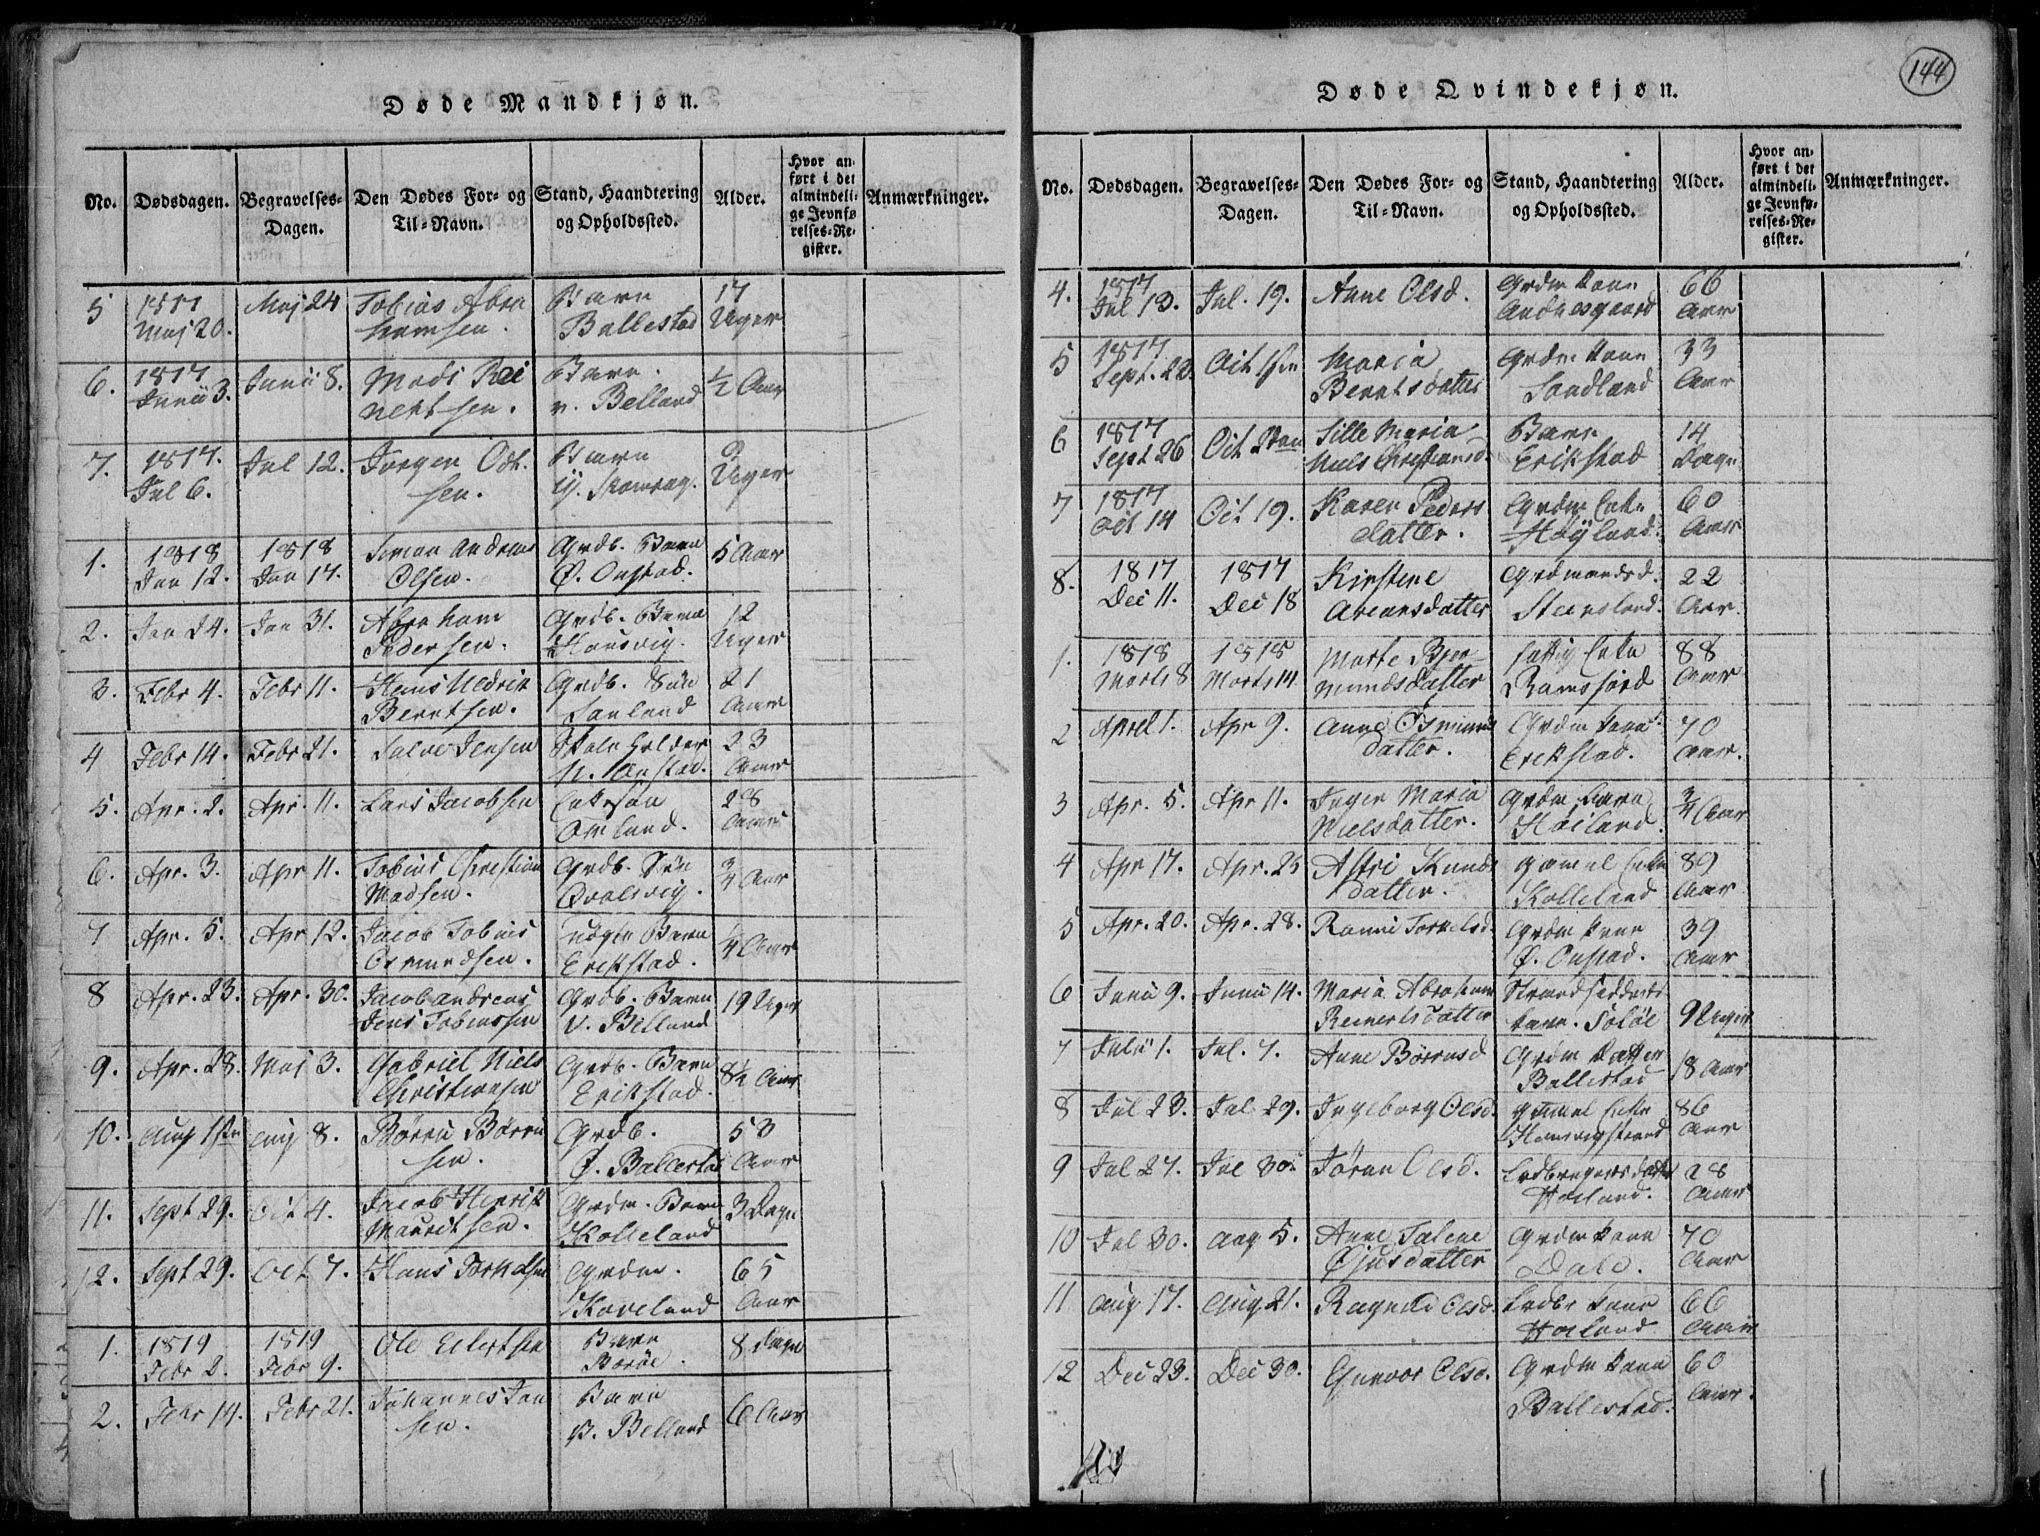 144
Døde Mandkjøn.
No. Dødsdagen. Begravelses-Dagen. Den Dødes For- og Til-Navn. Stand, Haandtering og Opholdssted. Alder. Hvor anført i det almindelige Jevnførelses-Register. Anmærkninger.
5 1817 Maj 20. Maj 24 Tobias Abra
hamsen. Barn Ballestad 17 Uger
6. 1817 Junii 3. Junii 8. Mads Rei
nertsen. Barn v. Belland ½ Aar
7. 1817. Jul 6. Jul 12. Jørgen
sen. Barn 9 Uger
1. 1818 Jan 12. 1818 Jan 17. Simon Andreas
Olsen. Grdb. Barn Ø. Onstad. 5 Aar
2. Jan 24. Jan 31. Abraham
Pedersen. Grdb. Barn 12 Uger
3. Febr 4. Febr 11. Hans Hedrik
Berntsen. Grdb. Søn 21 Aar
4 Febr 14. Febr 21. Salve Jensen Skoleholder 23 Aar
5. Apr. 2. Apr. 11. Lars Jacobsen Omland. 28 Aar
6. Apr. 3. Apr 11. Tobias Christian
Madsen. Grdb. Søn ¾ Aar
7 Apr. 5. Apr 12. Jacob Tobias
Osmundsen. Barn Erikstad. ¼ Aar
8 Apr. 23. Apr. 30. Jacob Andreas
Jens Tobiassen Grdb. Barn v. Belland 19 Uger
9. Apr. 28. Maj 3. Gabriel Niels
Christiansen Grdb. Barn Erikstad. 8½ Aar
10. Aug 1ste Aug 8. Børre Børre
sen. Grdb. Ø. Ballestad 53 Aar
11. Sept 29. Oct 4. Jacob Henrik
Mauritsen. Grdm. Barn Kolleland 3 Dage
12. Sept 29. Oct 7. Hans Torkelsen Grdm. Koveland 65 Aar
1. 1819 Febr 2. 1819 Febr 9. Ole Eilertsen Barn Borøe. 8 Dage
2. Febr 14. Febr 21. Johannes Jan
sen. Barn Belland 6 Aar
Døde Qvindekjøn.
No. Dødsdagen. Begravelses-Dagen. Den Dødes For- og Til-Navn. Stand, Haandtering og Opholdssted. Alder. Hvor anført i det almindelige Jevnførelses-Register. Anmærkninger.
4. 1817 Jul 13. Jul. 19. Anne Olsd. Grdm kone 66 Aar
5 1817 Sept. 22 Oct 1ste Maria
Berntsdatter Grdm kone Sandland 33 Aar
6 1817 Sept 26 Oct 2den Sille Maria
Niels Christiansd. Barn Erikstad 14 Dage
7 1817 Oct 14 Oct 19. Karen Peders
datter. Grdm Enke Høyland. 60 Aar
8. 1817 Dec 11. 1817 Dec 18 Kirstene
Areansdatter Grdmandsd. Steensland. 22 Aar.
1. 1818 Marts 8 1818 Marts 14 Marte
datter fattig Enke Ramsfiord 88 Aar
2 April 1. Apr 9. Anne
datter. Grdm kone Erikstad. 70 Aar.
3 Apr. 5. Apr 11. Inger Maria
Nielsdatter. Grdm Barn Høiland. ¾ Aar
4 Apr 17. Apr. 25 Astri Knuds
datter. gamel Enke Kolleland 89 Aar
5 Apr. 20. Apr. 28. Torkelsd. Grdm kone Ø. Onstad. 39 Aar
6 Junii 9. Junii 14. Maria Abraham
Reinertsdatter Strandsidders barn. 9 Uger
7 Julii 1. Jul. 7. Anne Børresd Grdm datter Ballestad 18 Aar
8 Jul 23. Jul 29. Ingeborg Olsd. gammel Enke 86 Aar
9 Jul 27. Jul 30. Jøran Olsd. Høiland. 28 Aar
10 Jul 30. Aug 5. Anne Talene
datter Grdm kone Dale. 70 Aar
11 Aug 17. Aug 21. Ragnild Olsd. kone Høiland 66 Aar
12 Dec 23. Dec 30. Gunvor Olsd. Grdm kone Ballestad. 60 Aar.